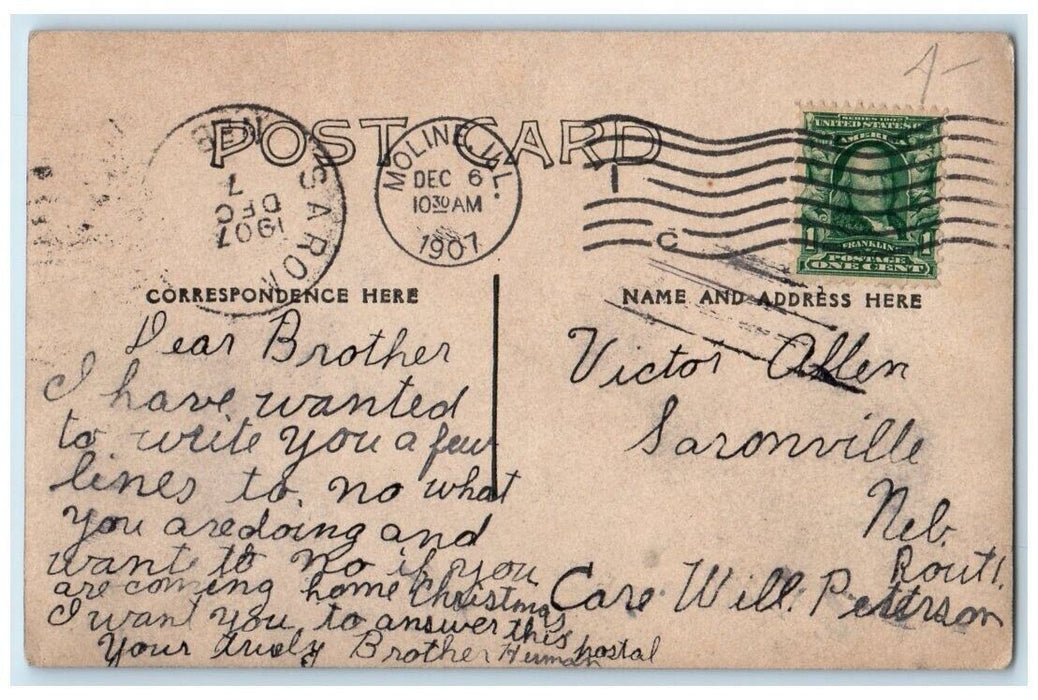 4-
POST CARD
SARON
NEB.
7
DEC
1907
MOLINE, ILL.
DEC 6
10 30 AM
1907
C
SERIES 1902
UNITED STATES OF
AMERICA
1
FRANKLIN
POSTAGE
ONE CENT
CORRESPONDENCE HERE
Dear Brother
I have wanted
to write you a few
lines to no what
you are doing and
want to no if you
are coming home Christmas
I want you to answer this
postal
Your truely Brother Herman
NAME AND ADDRESS HERE
Victor Allen
Saronville
Neb.
Rout 1.
Care Will. Peterson